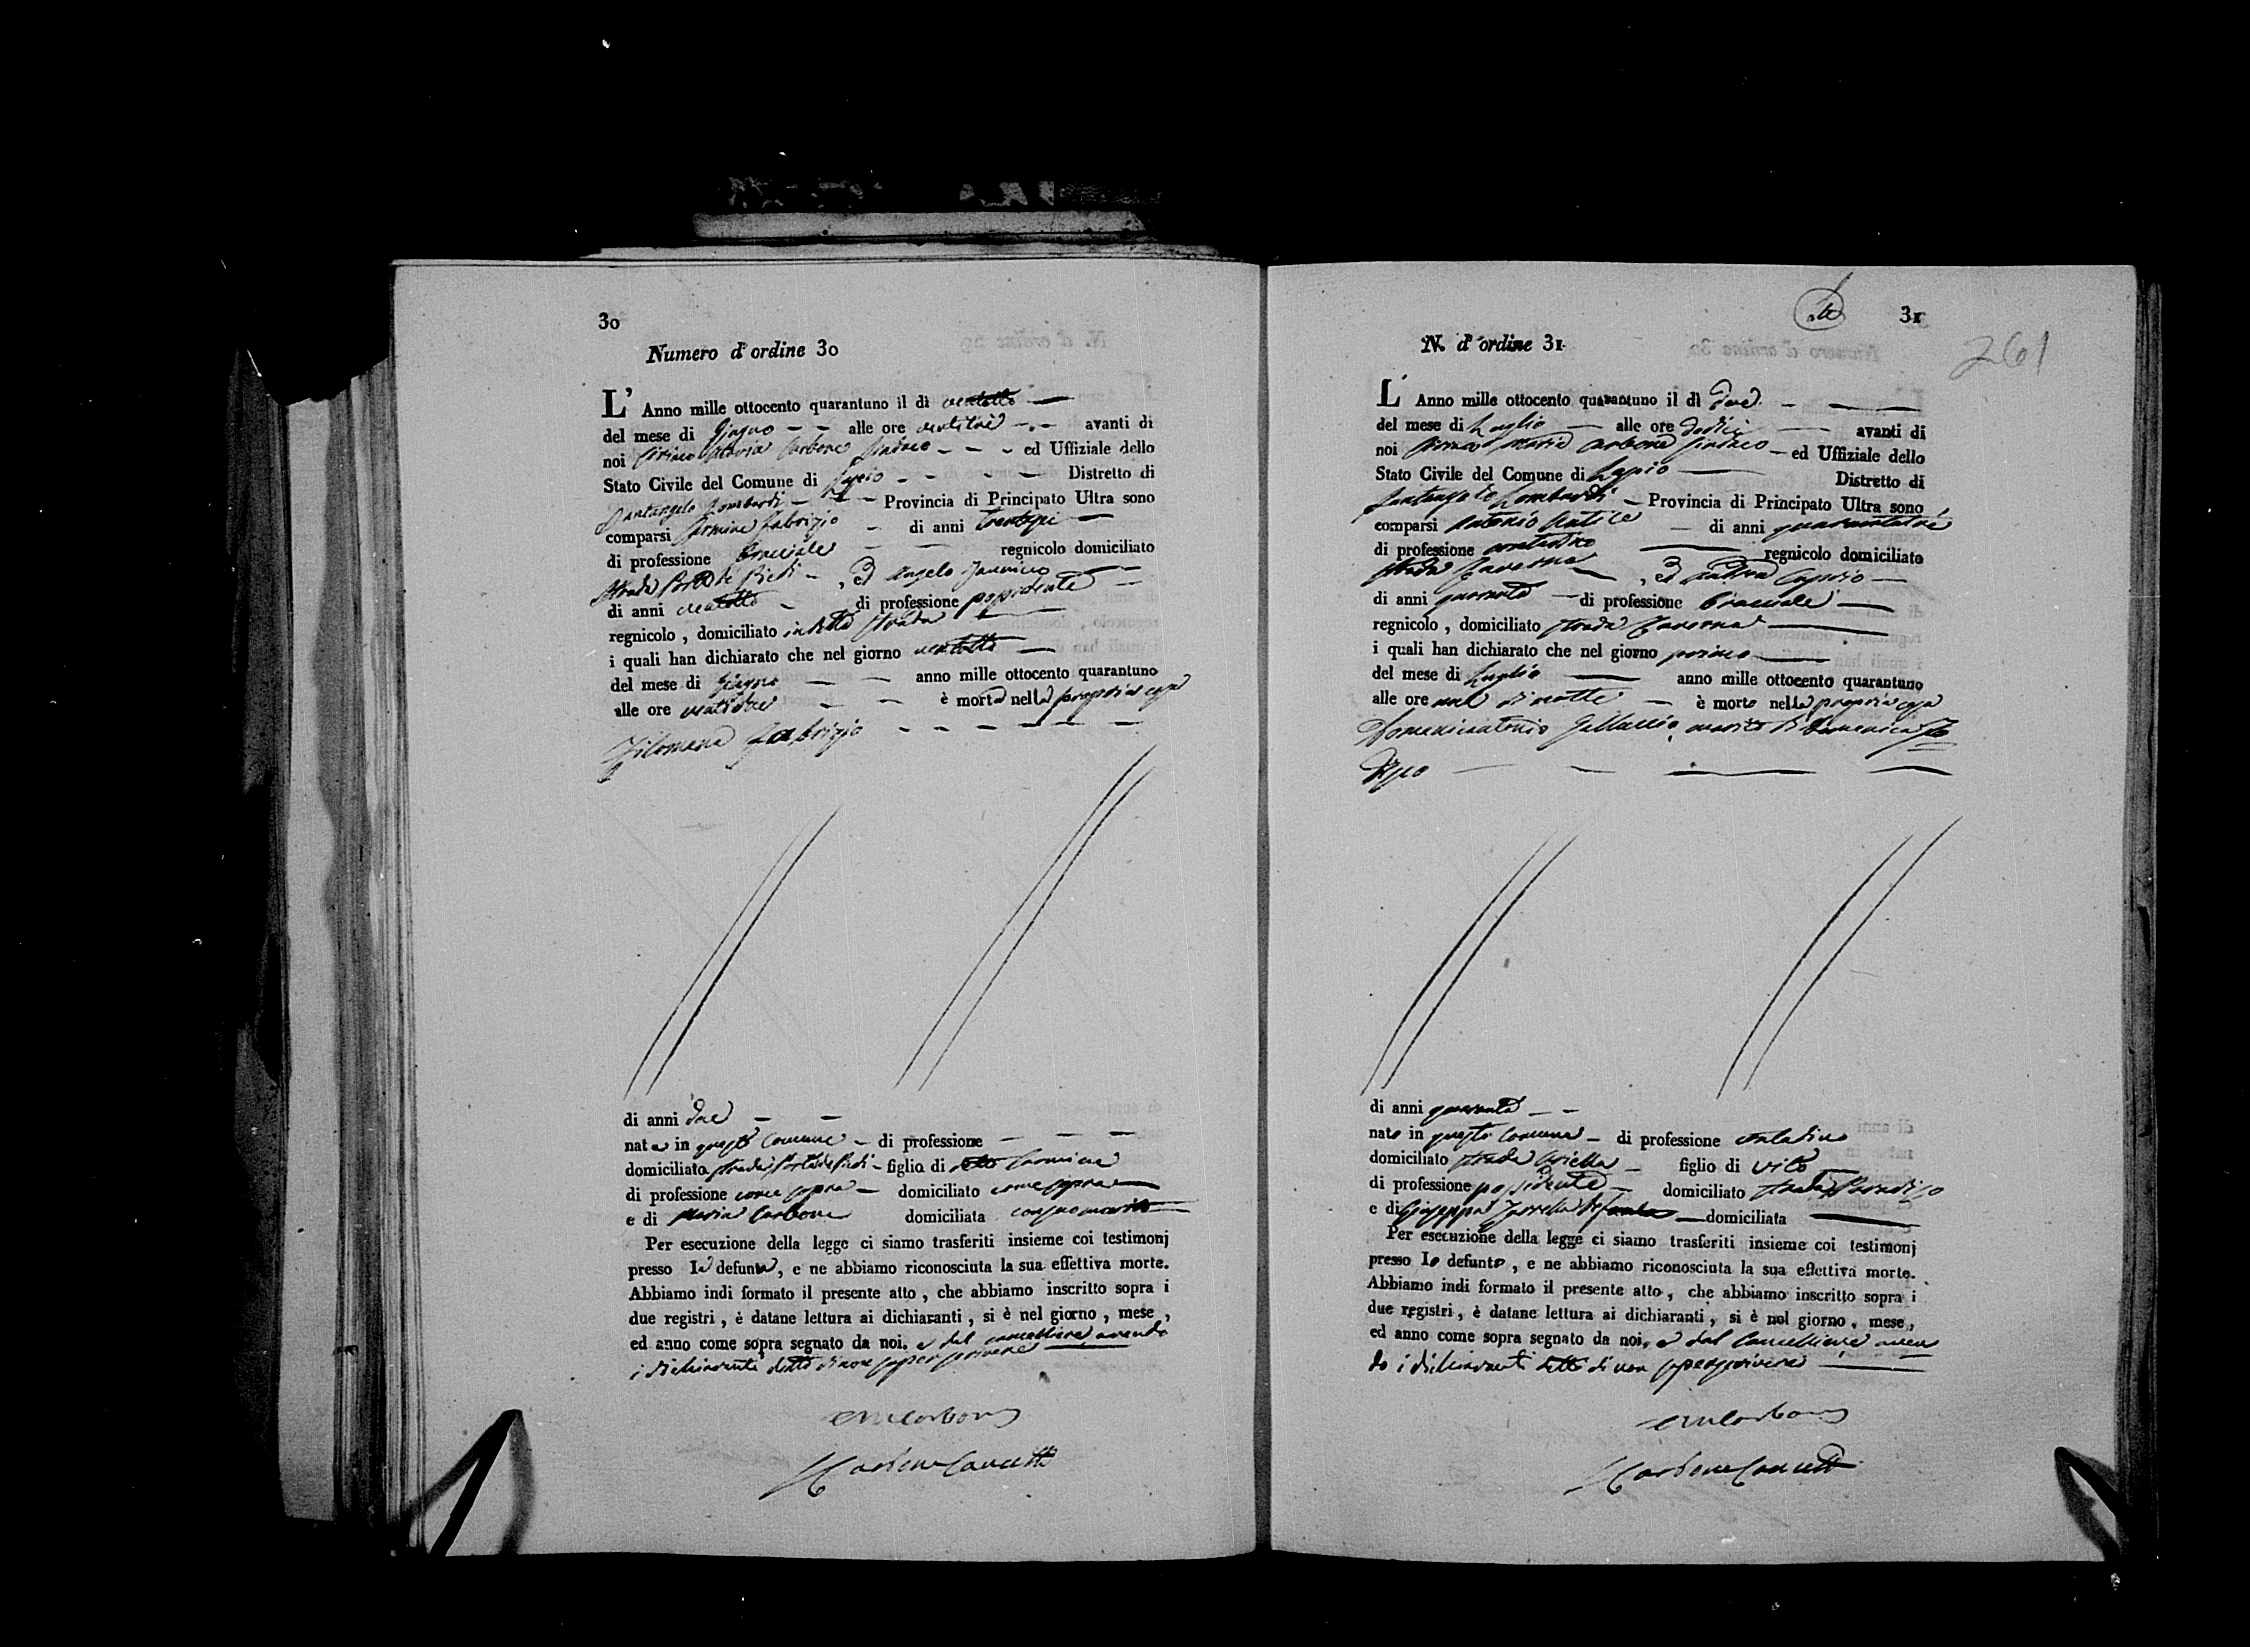 30
Numero d'ordine 30
L' Anno mille ottocento quarantuno il dì ventotto
del mese di Giugno alle ore ventitré avanti di
noi Ciriaco Maria Carbone Sindaco ed Uffiziale dello
Stato Civile del Comune di Lapio Distretto di
Santangelo Lombardi Provincia di Principato Ultra sono
comparsi Carmine Fabrizio di anni trentasei
di professione Bracciale regnicolo domiciliato
strada Porta di Piedi , ed Angelo
di anni ventotto di professione possidente
regnicolo , domiciliato in detta strada
i quali han dichiarato che nel giorno ventotto
del mese di Giugno anno mille ottocento quarantuno
alle ore ventidue è morta nella propria casa
Filomena Fabrizio
di anni due
nata in questo Comune di professione
domiciliata strada Porta di Piedi figlia di Carmine
di professione come sopra domiciliato come sopra
e di Maria Carbone domiciliata con suo marito
Per esecuzione della legge ci siamo trasferiti insieme coi testimonj
presso la defunta, e ne abbiamo riconosciuta la sua effettiva morte.
Abbiamo indi formato il presente atto , che abbiamo inscritto sopra i
due registri , è datane lettura ai dichiaranti , si è nel giorno , mese ,
ed anno come sopra segnato da noi, e dal cancelliere avendo
i dichiaranti detto di non saper scrivere
CMCarbone
Carbone Cancell
31
261
N. d'ordine 31
L' Anno mille ottocento quarantuno il dì due
del mese di Luglio alle ore dodici avanti di
noi Ciriaco Maria Carbone Sindaco ed Uffiziale dello
Stato Civile del Comune di Lapio Distretto di
Santangelo Lombardi Provincia di Principato Ultra sono
comparsi Antonio di anni quarantatré
di professione contadino regnicolo domiciliato
strada Taverna , ed Andrea Caprio
di anni quaranta di professione Bracciale
regnicolo , domiciliato strada Taverna
i quali han dichiarato che nel giorno primo
del mese di Luglio anno mille ottocento quarantuno
alle ore una di notte è morto nella propria casa
Domenicantonio marito di Domenica
di anni quaranta
nato in questo Comune di professione contadino
domiciliato strada figlio di Vito
di professione possidente domiciliato strada Paradiso
e di Giuseppa defunta domiciliata
Per esecuzione della legge ci siamo trasferiti insieme coi testimonj
presso lo defunto , e ne abbiamo riconosciuta la sua effettiva morte.
Abbiamo indi formato il presente atto , che abbiamo inscritto sopra i
due registri , è datane lettura ai dichiaranti , si è nel giorno , mese,
ed anno come sopra segnato da noi, e dal Cancelliere aven
do i dichiaranti detto di non saper scrivere
CMCarbone
Carbone Cancell